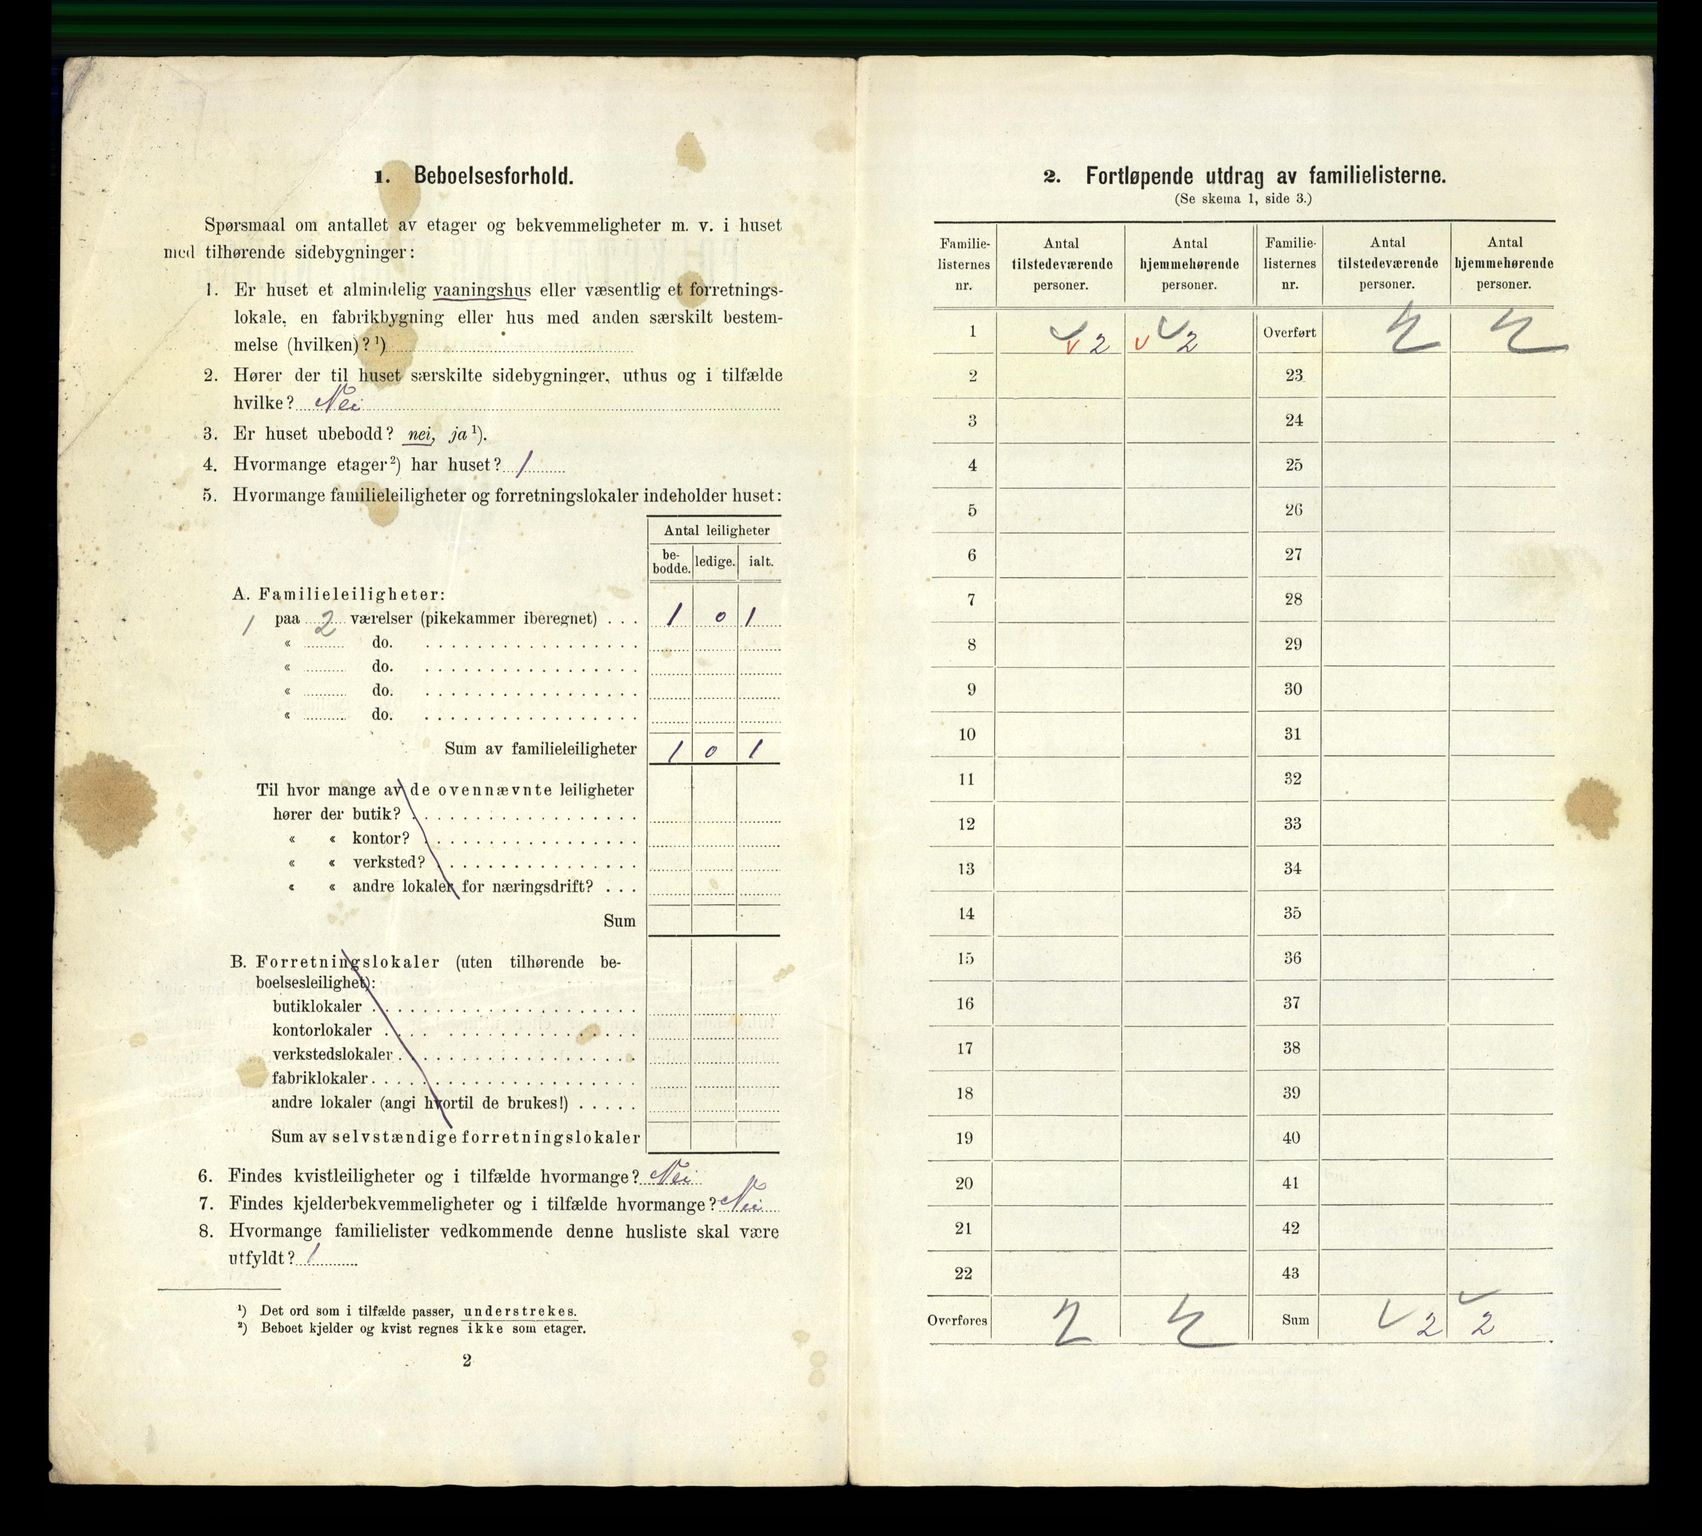 1. Beboelsesforhold.
Spørsmaal om antallet av etager og bekvemmeligheter m. v. i huset
med tilhørende sidebygninger:
1. Er huset et almindelig vaaningshus eller væsentlig et forretnings-
lokale, en fabrikbygning eller hus med anden særskilt bestem-
melse (hvilken)? ¹)
2. Hører der til huset særskilte sidebygninger, uthus og i tilfælde
hvilke? Nei
3. Er huset ubebodd? nei, ja ¹).
4. Hvormange etager ²) har huset? 1
5. Hvormange familieleiligheter og forretningslokaler indeholder huset:
Antal leiligheter
be-
bodde. ledige. ialt.
A. Familieleiligheter:
1 paa 2 værelser (pikekammer iberegnet) . . . 1 0 1
« do.
« do.
« do.
« do.
Sum av familieleiligheter 1 0 1
Til hvor mange av de ovennævnte leiligheter
hører der butik?
« « kontor?
« « verksted?
« « andre lokaler for næringsdrift? . . .
Sum
B. Forretningslokaler (uten tilhørende be-
boelsesleilighet):
butiklokaler
kontorlokaler
verkstedslokaler
fabriklokaler
andre lokaler (angi hvortil de brukes!) . . . . .
Sum av selvstændige forretningslokaler
6. Findes kvistleiligheter og i tilfælde hvormange? Nei
7. Findes kjelderbekvemmeligheter og i tilfælde hvormange? Nei
8. Hvormange familielister vedkommende denne husliste skal være
utfyldt? 1
¹) Det ord som i tilfælde passer, understrekes.
²) Beboet kjelder og kvist regnes ikke som etager.
2
2. Fortløpende utdrag av familielisterne.
(Se skema 1, side 3.)
Familie- Antal Antal Familie- Antal Antal
listernes tilstedeværende hjemmehørende listernes tilstedeværende hjemmehørende
nr. personer. personer. nr. personer. personer.
1 2 2 Overført 2 2
2 23
3 24
4 25
5 26
6 27
7 28
8 29
9 30
10 31
11 32
12 33
13 34
14 35
15 36
16 37
17 38
18 39
19 40
20 41
21 42
22 43
Overføres 2 2 Sum 2 2